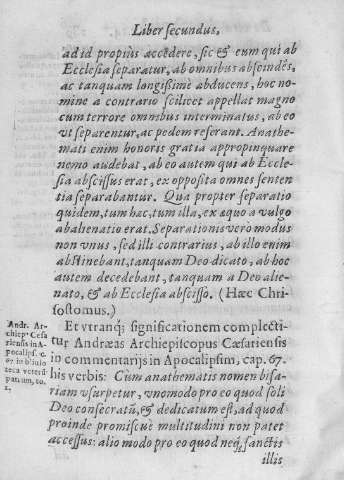 Liber secundus,
ad id propiùs accedere, sic & eum qui ab
Ecclesia separatur, ab omnibus abscindēs,
ac tanquam longißimè abducens, hoc no-
mine a contrario scilicet appellat magno
cum terrore omnibus interminatus, ab eo
vt separentur, ac pedem referant. Anathe-
mati enim honoris gratia appropinquare
nemo audebat, ab eo autem qui ab Eccle-
sia abscissus erat, ex opposita omnes senten
tia separabantur. Qua propter separatio
quidem, tum hac, tum illa, ex æquo a vulgo
abalienatio erat. Separationis vero modus
non vnus, sed illi contrarius, ab illo enim
abstinebant, tanquam Deo dicato, ab hoc
autem decedebant, tanquam a Deo alie-
nato, & ab Ecclesia abscisso. (Hæc Chri-
sostomus.)
Et vtranq; significationem complecti-
tur Andræas Archiepiscopus Cæsariensis
in commentarijs in Apocalipsim, cap. 67.
his verbis: Cùm anathematis nomen bifa-
riam vsurpetur, vno modo pro eo quod soli
Deo consecratū, & dedicatum est, ad quod
proinde promiscuæ multitudini non patet
accessus: alio modo pro eo quod neq; sanctis
illis
Andr. Ar-
chiepᵒ Cæsa
riensis in A-
pocalips. c.
67. in biblio
teca veterū
patrum, to.
1.